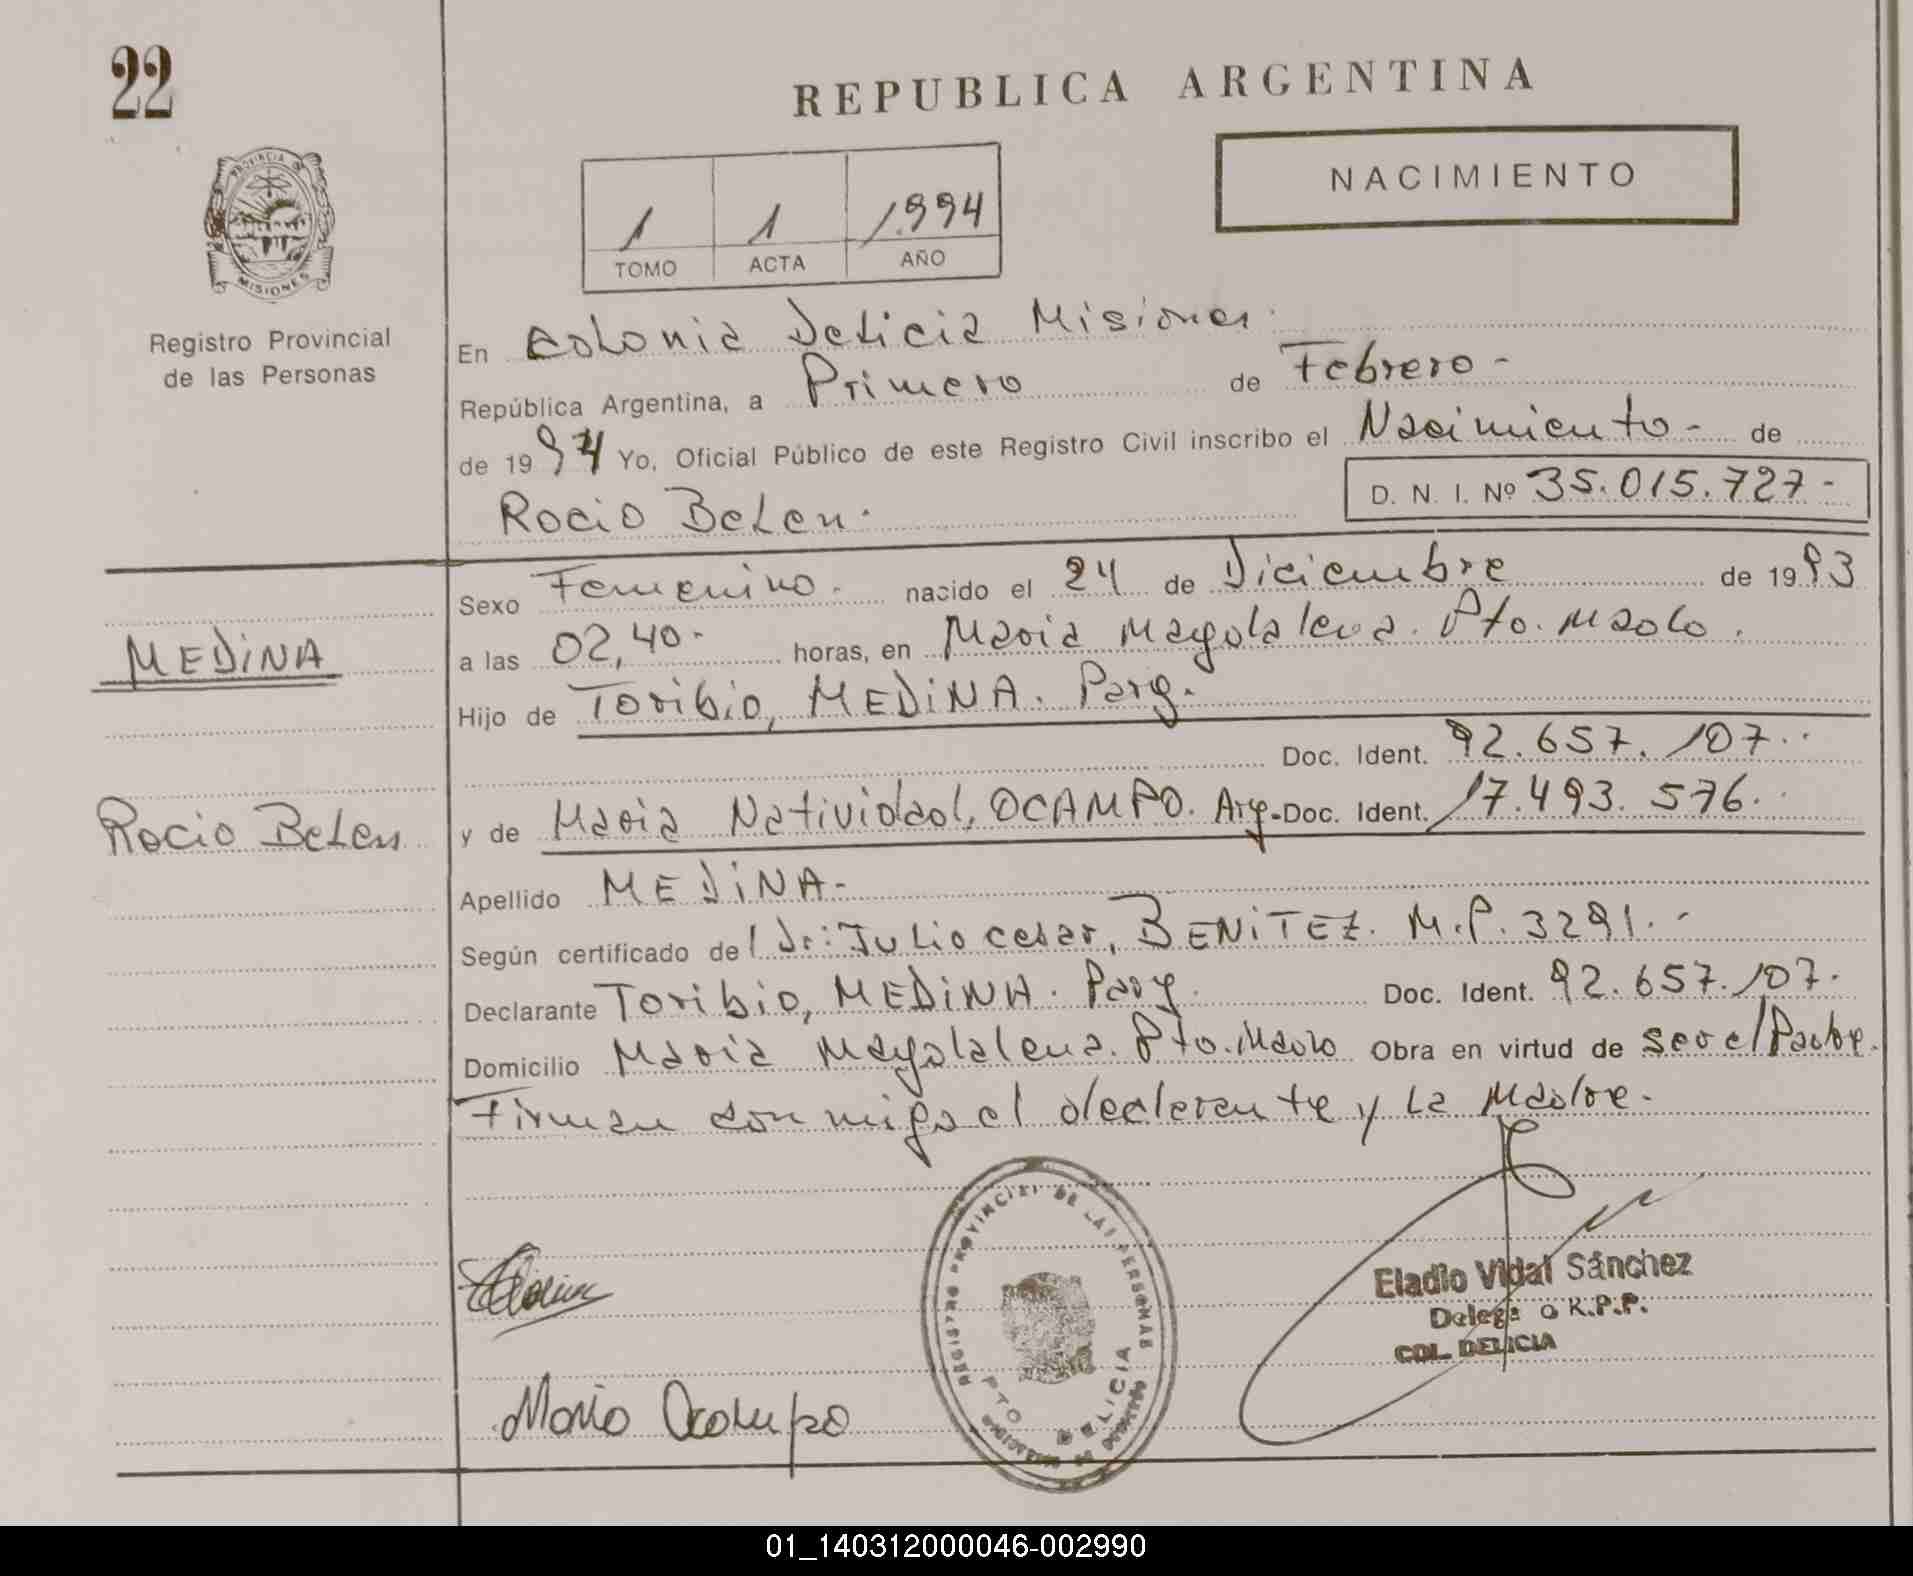 22
REPUBLICA ARGENTINA
NACIMIENTO
1 1 1.994
TOMO ACTA AÑO
PROVINCIA DE
MISIONES
Registro Provincial
de las Personas
En Colonia Delicia Misiones.
República Argentina, a Primero de Febrero -
de 1994 Yo, Oficial Público de este Registro Civil inscribo el Nacimiento - de
Rocio Belen. D. N. I. Nº 35.015.727-
Sexo Femenino. nacido el 24 de Diciembre de 1993
MEDINA
a las 02,40. horas, en Maria Magdalena. Pto. Mado.
Hijo de Toribio, MEDINA. Parg.
Doc. Ident. 92.657.107..
Rocio Belen
y de Maria Natividad, OCAMPO. Arg. Doc. Ident. 17.493.576.
Apellido MEDINA-
Según certificado del Dr: Julio Cesar, BENITEZ. M.P. 3291.-
Declarante Toribio, MEDINA. Parg. Doc. Ident. 92.657.107.
Domicilio Maria Magdalena. Pto. Mado Obra en virtud de ser el Padre.
Firman conmigo el declarante y la Madre.
REGISTRO PROVINCIAL DE LAS PERSONAS
PTO DELICIA
Eladio Vidal Sánchez
Delega o R.P.P.
COL. DELICIA
Maria Ocampo
01_140312000046-002990